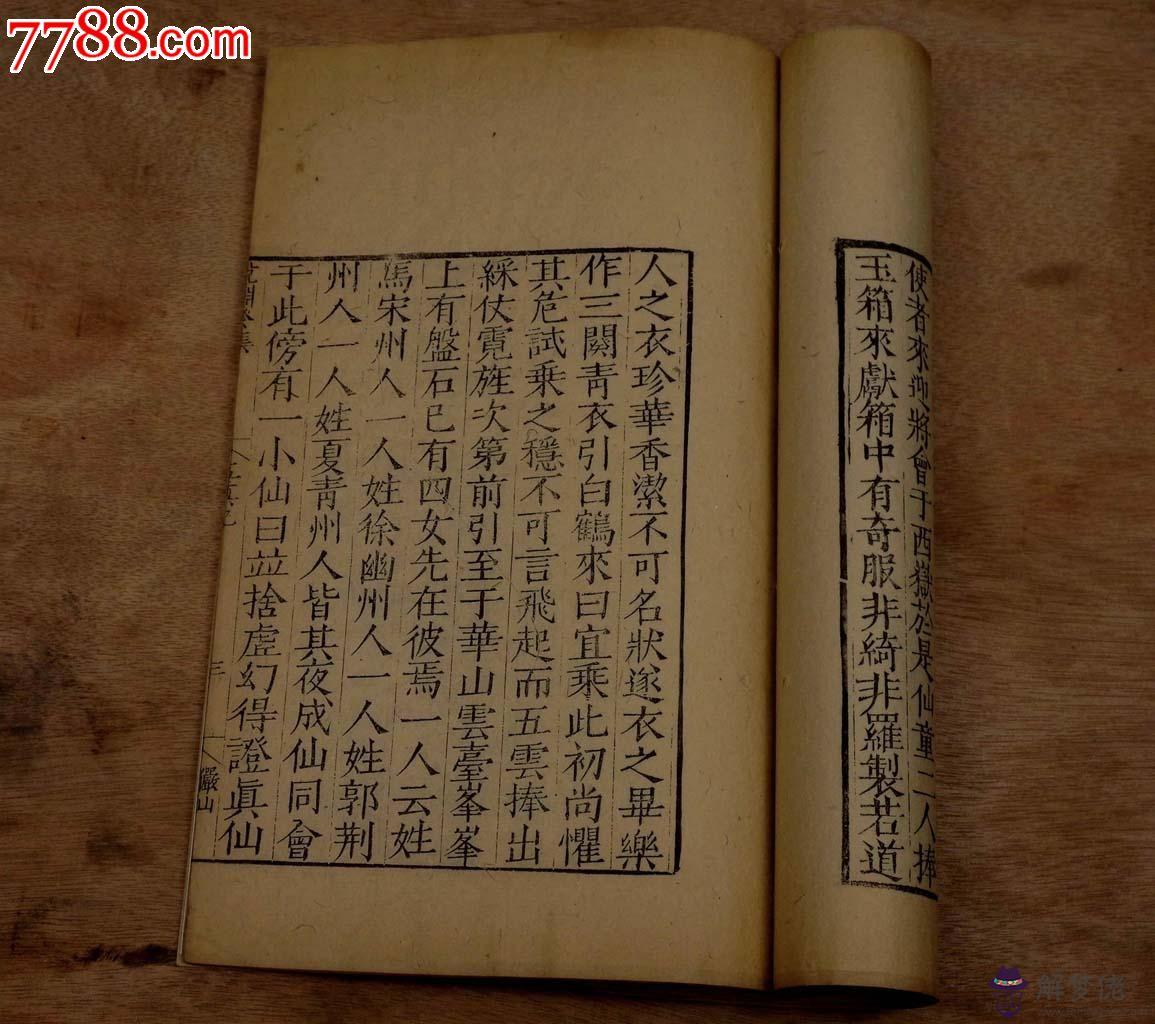 7788.com
使者來迎將會于西嶽於是仙童二人捧
玉箱來獻箱中有奇服非綺非羅製若道
人之衣珍華香潔不可名狀遂衣之畢樂
作三闋青衣引白鶴來曰宜乘此初尚懼
其危試乘之穩不可言飛起而五雲捧出
綵仗霓旌次第前引至于華山雲臺峯峯
上有盤石已有四女先在彼焉一人云姓
馬宋州人一人姓徐幽州人一人姓郭荆
州人一人姓夏青州人皆其夜成仙同會
于此傍有一小仙曰竝捨虛幻得證眞仙
三
嚴山
解梦佬